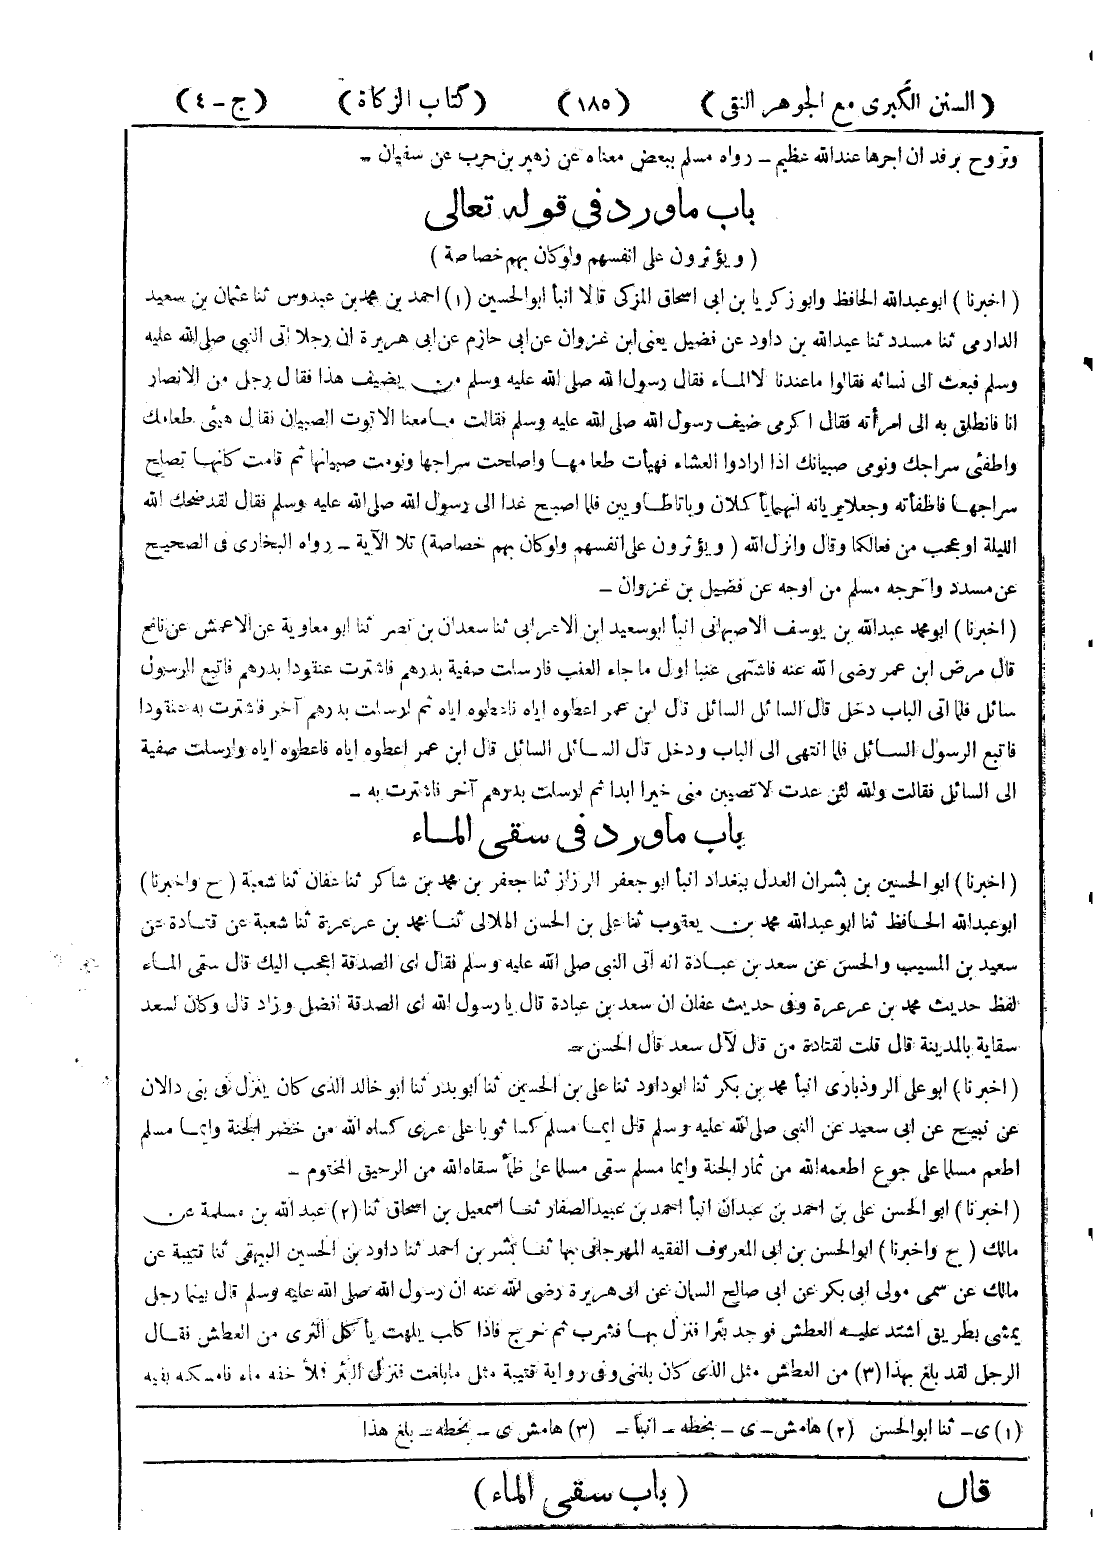 ( السنن الكبرى مع الجوهر النقى ) ( ١٨٥ ) ( كتاب الزكاة ) ( ج - ٤ )
وتروح برفد ان اجرها عند الله عظيم - رواه مسلم ببعض معناه عن زهير بن حرب عن سفيان -
باب ماورد فى قوله تعالى
( ويؤثرون على انفسهم ولو كان بهم خصاصة )
( اخبرنا ) ابو عبد الله الحافظ وابو زكريا بن ابى اسحاق المزكى قالا انبأ ابو الحسين (١) احمد بن محمد بن عبدوس ثنا عثمان بن سعيد
الدارمى ثنا مسدد ثنا عبد الله بن داود عن فضيل يعنى ابن غزوان عن ابى حازم عن ابى هريرة ان رجلا اتى النبي صلى الله عليه
وسلم فبعث الى نسائه فقالوا ماعندنا الا الماء فقال رسول الله صلى الله عليه وسلم من يضيف هذا فقال رجل من الانصار
انا فانطلق به الى امرأته فقال اكرمى ضيف رسول الله صلى الله عليه وسلم فقالت مامعنا الا قوت الصبيان فقال هيئى طعامك
واطفئى سراجك ونومى صبيانك اذا ارادوا العشاء فهيأت طعامها واصلحت سراجها ونومت صبيانها ثم قامت كانها تصلح
سراجها فاطفأته وجعلا يريانه انهما يأكلان وباتا طاويين فلما اصبح غدا الى رسول الله صلى الله عليه وسلم فقال لقد ضحك الله
الليلة او عجب من فعالكما وقال وانزل الله ( ويؤثرون على انفسهم ولو كان بهم خصاصة ) تلا الآية - رواه البخارى فى الصحيح
عن مسدد واخرجه مسلم من اوجه عن فضيل بن غزوان -
( اخبرنا ) ابو محمد عبد الله بن يوسف الاصبهانى انبأ ابو سعيد ابن الاعرابى ثنا سعدان بن نصر ثنا ابو معاوية عن الاعمش عن نافع
قال مرض ابن عمر رضى الله عنه فاشتهى عنبا اول ما جاء العنب فارسلت صفية بدرهم فاشترت عنقودا بدرهم فاتبع الرسول
سائل فلما اتى الباب دخل قال السائل السائل قال ابن عمر اعطوه اياه فاعطوه اياه ثم ارسلت بدرهم آخر فاشترت به عنقودا
فاتبع الرسول السائل فلما انتهى الى الباب ودخل قال السائل السائل قال ابن عمر اعطوه اياه فاعطوه اياه وارسلت صفية
الى السائل فقالت والله لئن عدت لا تصيبن منى خيرا ابدا ثم ارسلت بدرهم آخر فاشترت به -
باب ماورد فى سقى الماء
( اخبرنا ) ابو الحسين بن بشران العدل ببغداد انبأ ابو جعفر الرزاز ثنا جعفر بن محمد بن شاكر ثنا عفان ثنا شعبة ( ح واخبرنا )
ابو عبد الله الحافظ ثنا ابو عبد الله محمد بن يعقوب ثنا على بن الحسن الهلالى ثنا محمد بن عرعرة ثنا شعبة عن قتادة عن
سعيد بن المسيب والحسن عن سعد بن عبادة انه أتى النبى صلى الله عليه وسلم فقال اى الصدقة اعجب اليك قال سقى الماء
لفظ حديث محمد بن عرعرة وفى حديث عفان ان سعد بن عبادة قال يا رسول الله اى الصدقة افضل وزاد قال وكان لسعد
سقاية بالمدينة قال قلت لقتادة من قال لآل سعد قال الحسن -
( اخبرنا ) ابو على الروذبارى انبأ محمد بن بكر ثنا ابو داود ثنا على بن الحسين ثنا ابو بدر ثنا ابو خالد الذى كان ينزل فى بنى دالان
عن نبيح عن ابى سعيد عن النبى صلى الله عليه وسلم قال ايما مسلم كسا ثوبا على عرى كساه الله من خضر الجنة وايما مسلم
اطعم مسلما على جوع اطعمه الله من ثمار الجنة وايما مسلم سقى مسلما على ظمأ سقاه الله من الرحيق المختوم -
( اخبرنا ) ابو الحسن على بن احمد بن عبدان انبأ احمد بن عبيد الصفار ثنا اسمعيل بن اسحاق ثنا (٢) عبد الله بن مسلمة عن
مالك ( ح واخبرنا ) ابو الحسن بن ابى المعروف الفقيه المهرجانى بها ثنا بشر بن احمد ثنا داود بن الحسين البيهقى ثنا قتيبة عن
مالك عن سمى مولى ابى بكر عن ابى صالح السمان عن ابى هريرة رضى الله عنه ان رسول الله صلى الله عليه وسلم قال بينما رجل
يمشى بطريق اشتد عليه العطش فوجد بئرا فنزل بها فشرب ثم خرج فاذا كلب يلهث يأكل الثرى من العطش فقال
الرجل لقد بلغ بهذا (٣) من العطش مثل الذى كان بلغنى وفى رواية قتيبة مثل مابلغت فنزل البئر فملأ خفه ماء فامسكه بفيه
(١) ى - ثنا ابو الحسن (٢) هامش - ى - بخطه - انبأ - (٣) هامش ى - بخطه - بلغ هذا
قال ( باب سقى الماء )